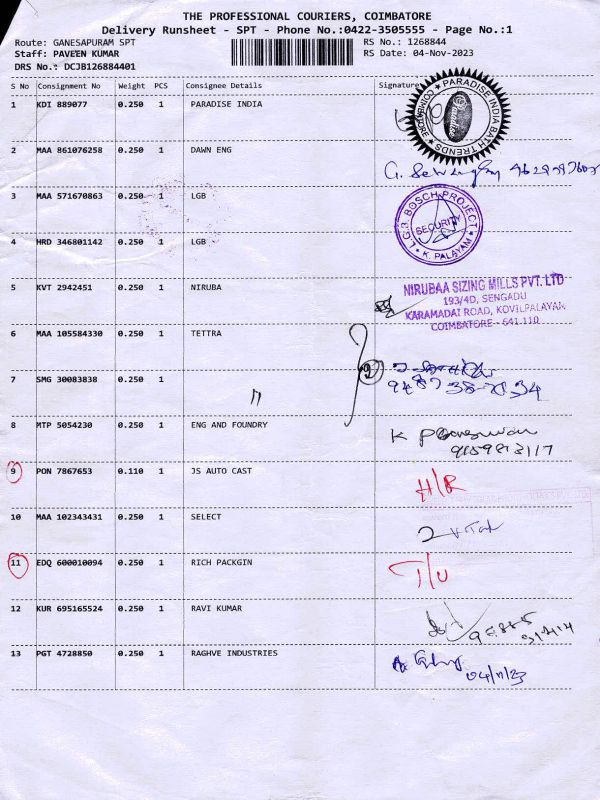 THE PROFESSIONAL COURIERS, COIMBATORE
Delivery Runsheet - SPT - Phone No.:0422-3505555 - Page No.:1
Route: GANESAPURAM SPT
RS No.: 1268844
Staff: PAVEEN KUMAR
RS Date: 04-Nov-2023
DRS No.: DCJB126884401
S No Consignment No Weight PCS Consignee Details Signature
1 KDI 889077 0.250 1 PARADISE INDIA
PARADISE INDIA BATH TRENDS
COIMBATORE
Paradise
2 MAA 861076258 0.250 1 DAWN ENG
3 MAA 571670863 0.250 1 LGB
L.G.B. BOSCH PROJECT
SECURITY
K. PALAYAM
4 HRD 346801142 0.250 1 LGB
5 KVT 2942451 0.250 1 NIRUBA
NIRUBAA SIZING MILLS PVT. LTD
193/4D, SENGADU
KARAMADAI ROAD, KOVILPALAYAM
COIMBATORE - 641 110
6 MAA 105584330 0.250 1 TETTRA
7 SMG 30083838 0.250 1
8 MTP 5054230 0.250 1 ENG AND FOUNDRY
K
9 PON 7867653 0.110 1 JS AUTO CAST
H/R
10 MAA 102343431 0.250 1 SELECT
11 EDQ 600010094 0.250 1 RICH PACKGIN
T/U
12 KUR 695165524 0.250 1 RAVI KUMAR
13 PGT 4728850 0.250 1 RAGHVE INDUSTRIES
04/11/23